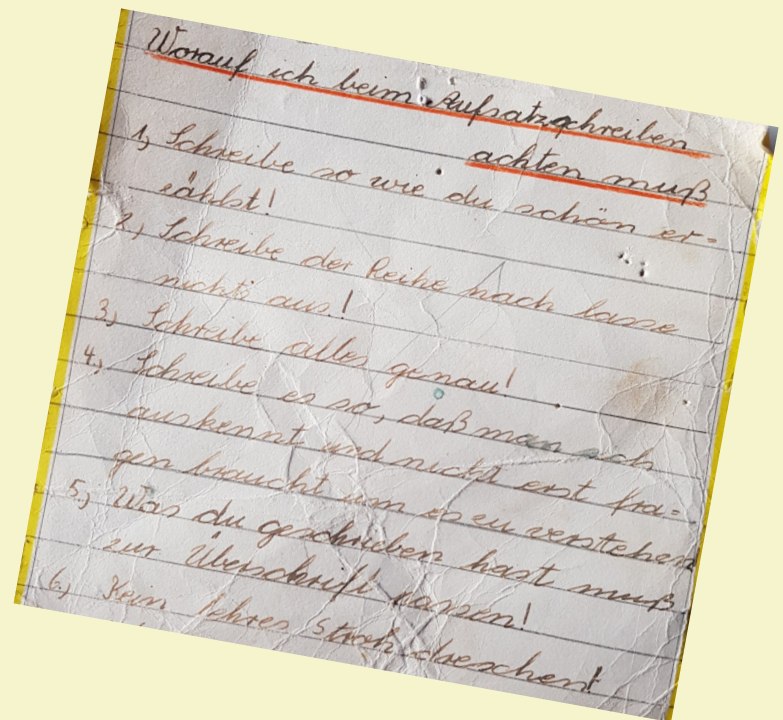 Worauf ich beim Aufsatzschreiben
achten muß
1, Schreibe so wie du schön er=
zählst!
2, Schreibe der Reihe nach lasse
nichts aus!
3., Schreibe alles genau!
4., Schreibe es so, daß man sich
auskennt und nicht erst fra=
gen braucht um es zu verstehen
5., Was du geschrieben hast muß
zur Überschrift passen!
6., Kein lehres Stroh dreschen!